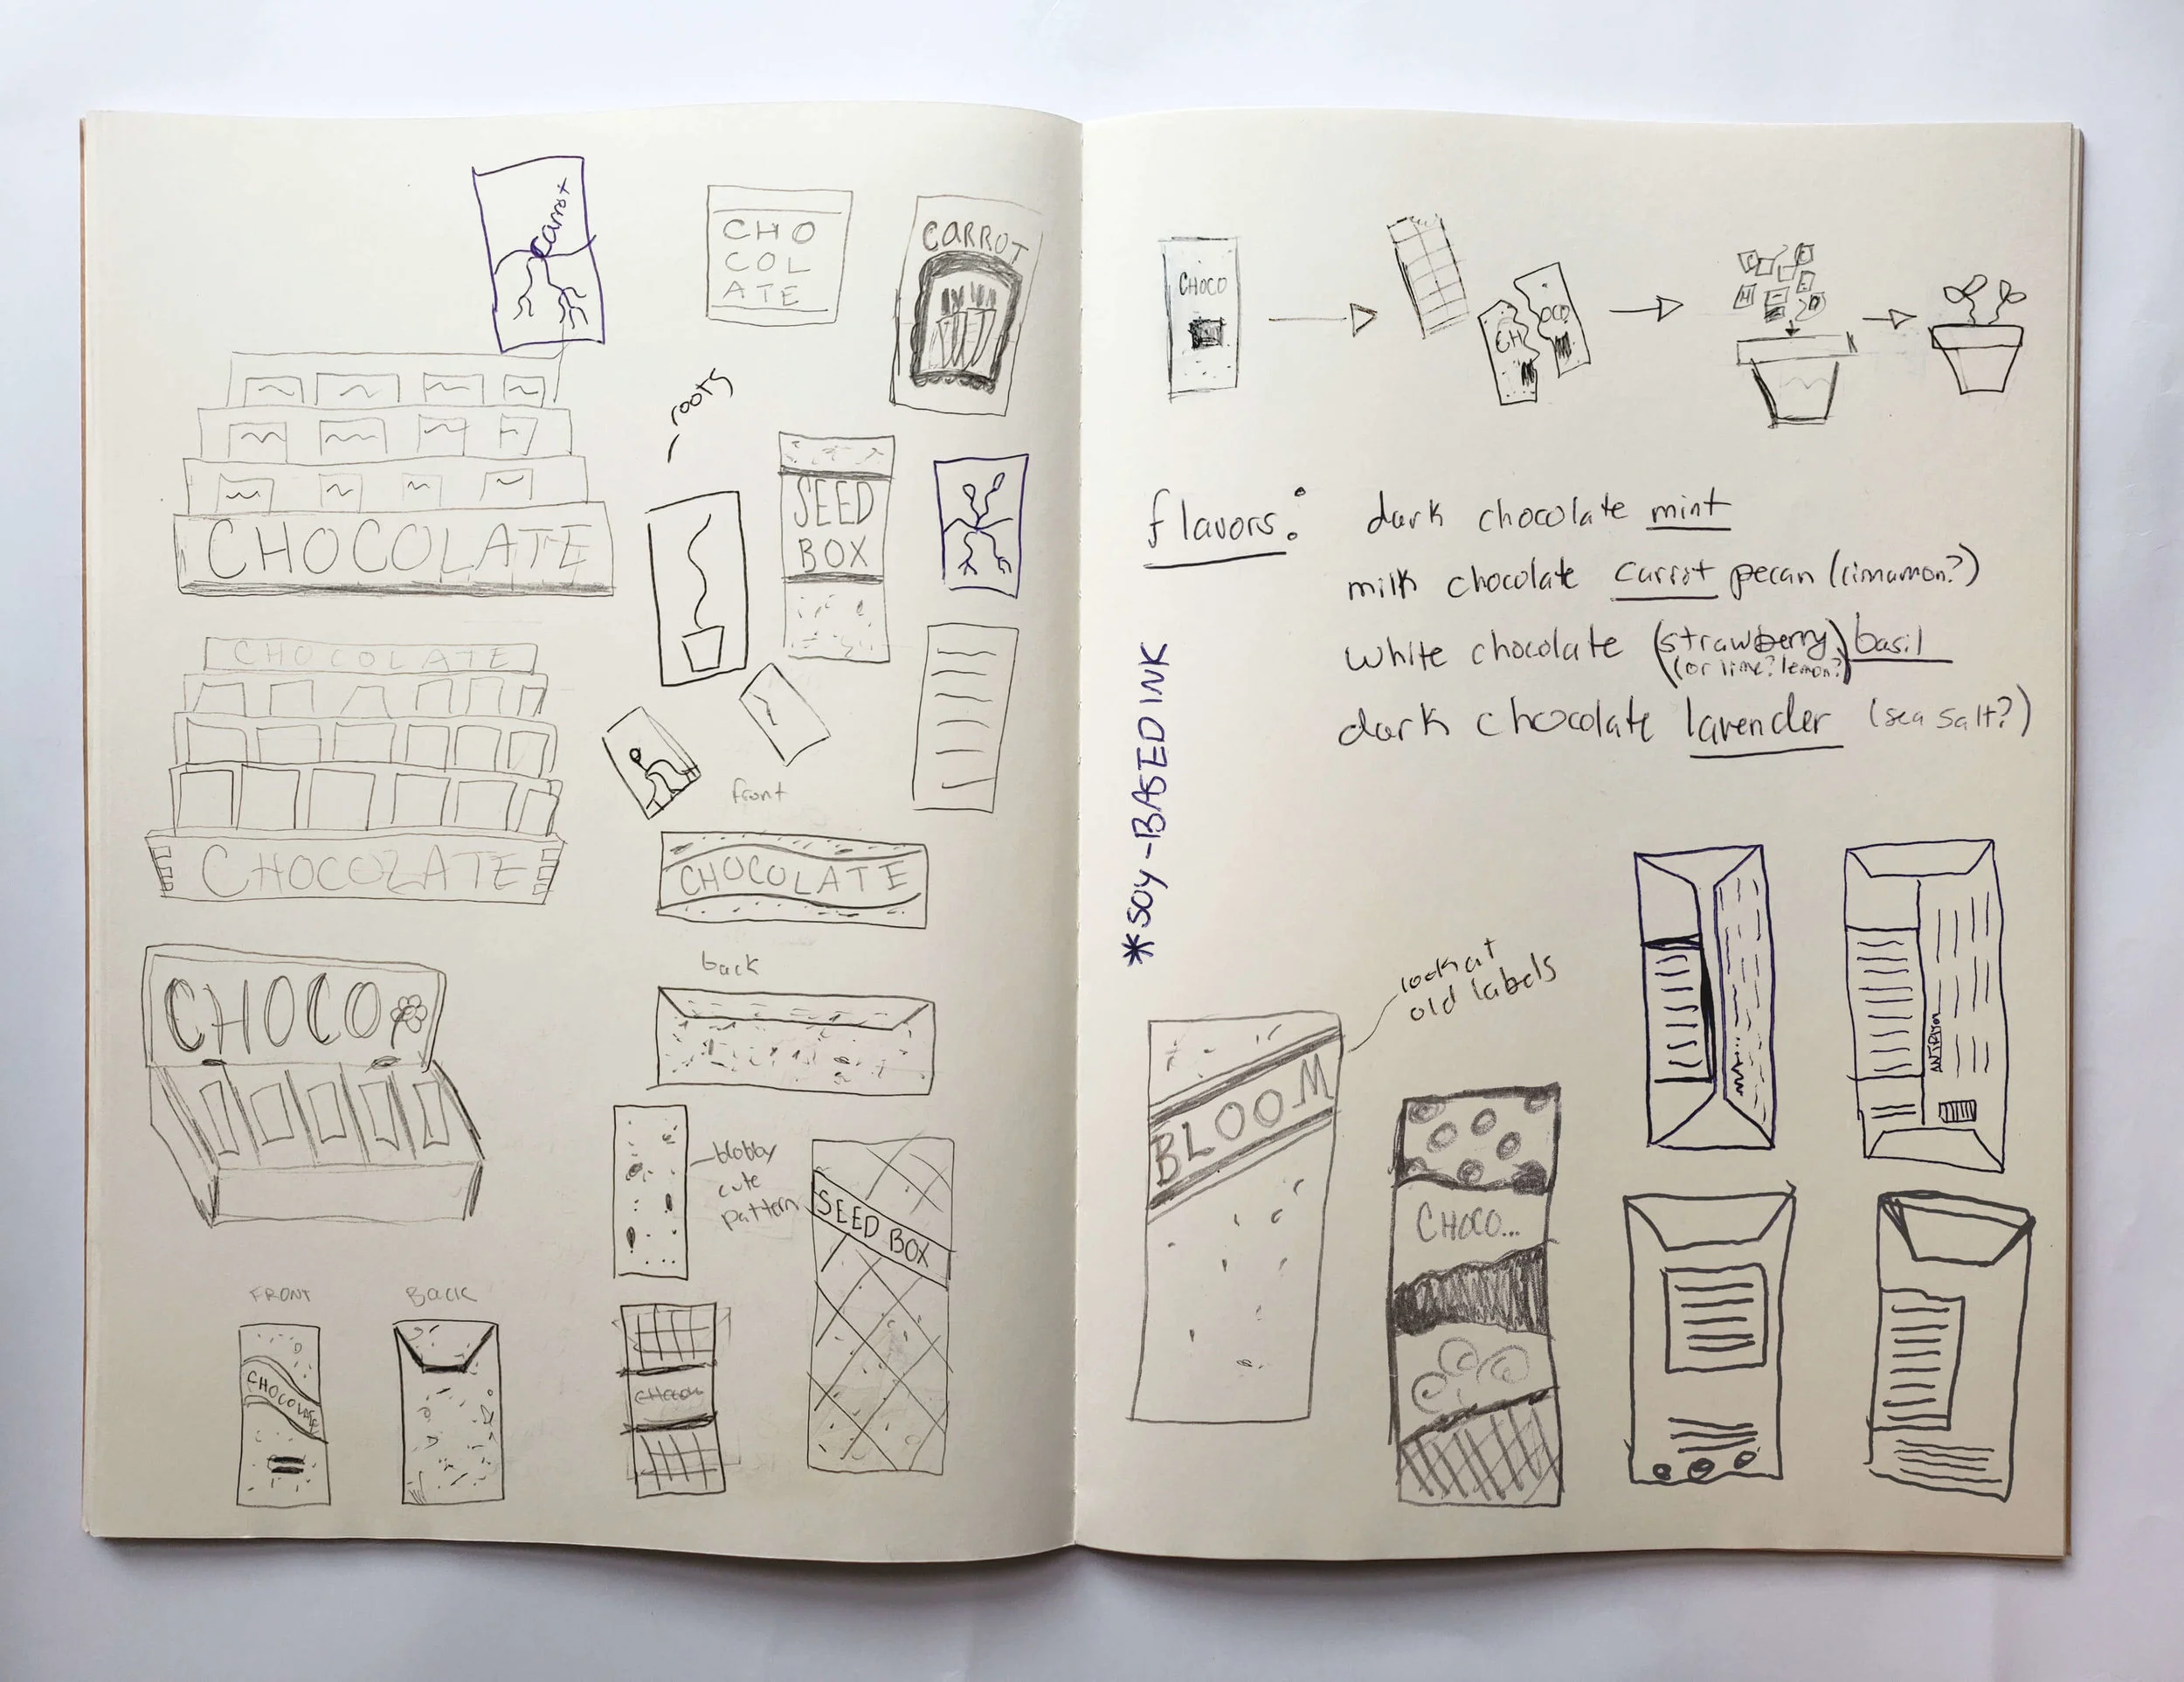 carrot
CHO
COL
ATE
CARROT
roots
SEED
BOX
CHOCOLATE
CHOCOLATE
CHOCOLATE
front
CHOCOLATE
back
CHOCO
blobby
cute
pattern
SEED BOX
FRONT
BACK
CHOCOLATE
CHOCO
CH
OCO
flavors:
dark chocolate mint
milk chocolate carrot pecan (cinnamon?)
white chocolate (strawberry) basil
(or lime? lemon?)
dark chocolate lavender (sea salt?)
*SOY-BASED INK
look at
old labels
BLOOM
CHOCO...